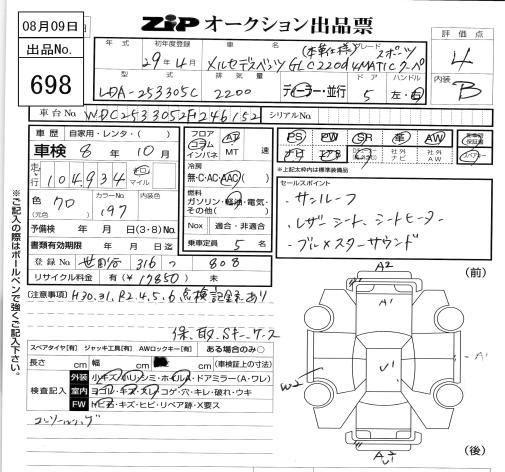 08月09日
出品No.
698
ZIP オークション出品票
評価点
4
内装
B
年式 初年度登録 車名 グレード
29年4月 メルセデスベンツ (本革仕様) GLC220d 4MATIC クーペ スポーツ
型式 排気量 ドア ハンドル
LDA-253305C 2200 ディーラー・並行 5 左・右
車台No. WDC2533052F246152 シリアルNo.
車歴 自家用・レンタ・( )
車検 8年 10月
走行 104,934 キロ マイル
色 クロ カラーNo. 197 内装色
(元色)
予備検 年 月 日(3・8)No.
書類有効期限 年 月 日迄
登録No. 世田谷 316 つ 808
リサイクル料金 有(¥17850)無
フロア コラム インパネ AT MT 速
冷房 無・C・AC・AAC
燃料 ガソリン・軽油・電気・その他( )
Nox 適合・非適合
乗車定員 5 名
PS PW SR 革 AW
ナビ 社外ナビ 社外AW
※上記太枠内は標準装備品
セールスポイント
・サンルーフ
・レザーシート、シートヒーター
・ブルメスターサウンド
(注意事項) H30.31.R2.4.5.6.点検記録あり
保、取、Sキー、ケース
スペアタイヤ[有] ジャッキ工具[有] AWロックキー[有] ある場合のみ○
長さ cm 幅 cm cm (車検証上の寸法)
検査記入
外装 小キズ・小リンミ・ホイルA・ドアミラー(A・ワレ)
室内 ヨゴレ・キズ・スレ・コゲ・穴・キレ・破れ・ウキ
FW トビ石・キズ・ヒビ・リペア跡・X要ス
※ご記入の際はボールペンで強くご記入下さい。
(前)
A2
A1
U1
A1
W2
A
U1
(後)